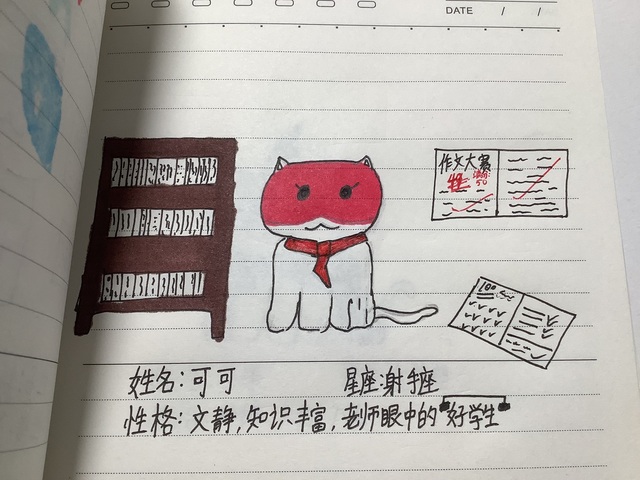 DATE / /
作文大赛
满分
50
100
姓名:可可 星座:射手座
性格:文静,知识丰富,老师眼中的"好学生"